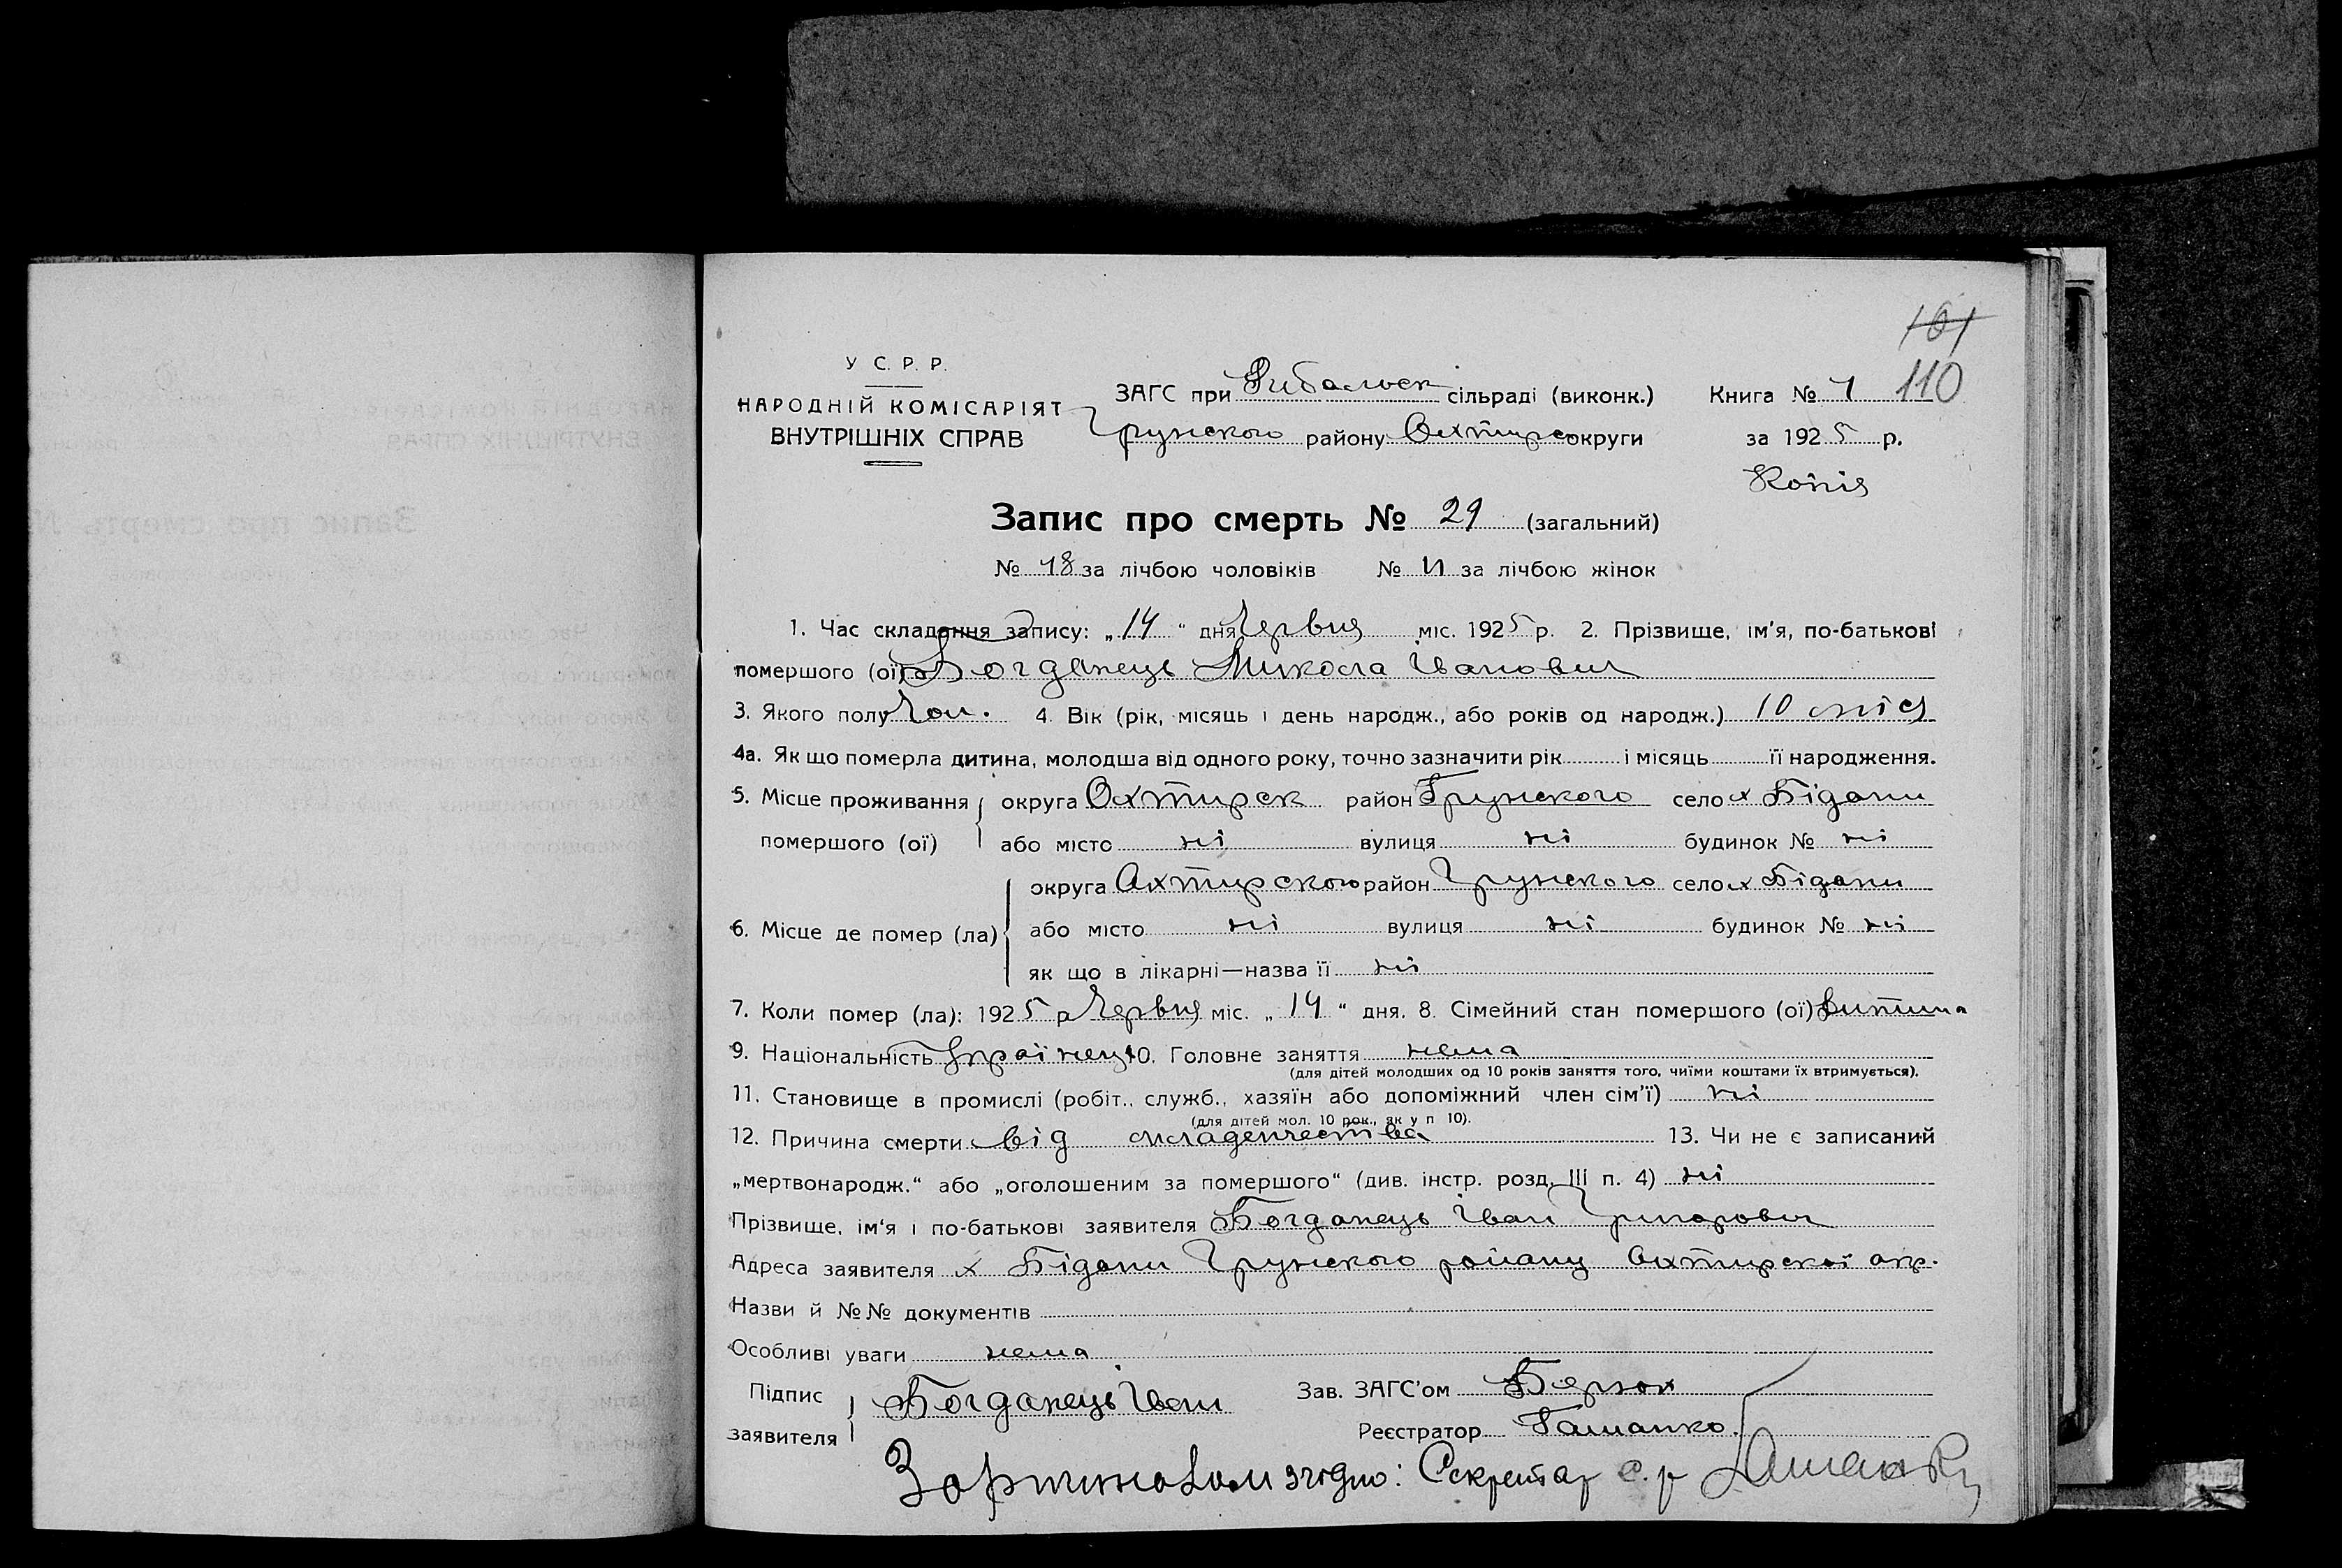 101
110
У С. Р. Р.
НАРОДНІЙ КОМІСАРІЯТ
ВНУТРІШНІХ СПРАВ
ЗАГС при Рибальск сільраді (виконк.) Книга № 1
Грунского району Охтирс округи за 1925 р.
Копія
Запис про смерть № 29 (загальний)
№ 18 за лічбою чоловіків № 11 за лічбою жінок
1. Час складання запису: „14“ дня Червня міс. 1925 р. 2. Прізвище, ім'я, по-батькові
помершого (ої) Богданець Микола Іванович
3. Якого полу Чол. 4. Вік (рік, місяць і день народж., або років од народж.) 10 міся
4а. Як що померла дитина, молодша від одного року, точно зазначити рік і місяць її народження.
5. Місце проживання помершого (ої) округа Охтирск район Грунского село х Бідани
або місто ні вулиця ні будинок № ні
6. Місце де помер (ла) округа Ахтирского район Грунского село х Бідани
або місто ні вулиця ні будинок № ні
як що в лікарні—назва її ні
7. Коли помер (ла): 1925 р Червня міс. „14“ дня. 8. Сімейний стан помершого (ої) Дитина
9. Національність Українец 10. Головне заняття нема
(для дітей молодших од 10 років заняття того, чиїми коштами їх втримується).
11. Становище в промислі (робіт., служб., хазяїн або допоміжний член сім'ї) ні
(для дітей мол. 10 рок., як у п 10).
12. Причина смерти від младенчества 13. Чи не є записаний
„мертвонародж.“ або „оголошеним за помершого“ (див. інстр. розд. III п. 4) ні
Прізвище, ім'я і по-батькові заявителя Богданець Іван Григорович
Адреса заявителя х Бідани Грунского району Охтирскої окр.
Назви й №№ документів
Особливі уваги нема
Підпис заявителя Богданець Іван Зав. ЗАГС'ом
Реєстратор
З оригиналом згідно: Секретар с. р